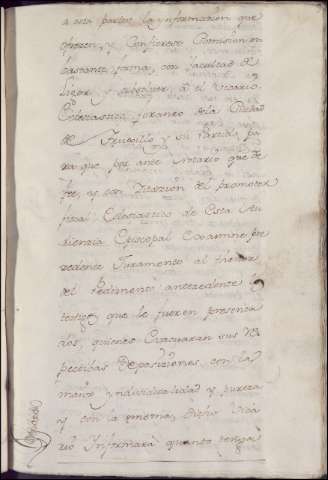 a esta parte, la ynformacion que
ofrecen, y Confiereso Comision en
bastante forma, con facultad de
ligar y absolver, à el Vicario
Eclesiastico foraneo de la Ciudad
de Truxillo y su Partido, pa
ra que por ante Notario que de
fee, y con Citacion del promotor
fiscal Eclesiastico de esta Au
diencia Episcopal Examine pre
cedente Juramento al thenor
del Pedimento antecedente los
testigos que le fueren presenta
dos, quienes Evacuaran sus res
pectibas Deposiciones con la
mayor yndividualidad y pureza
y con la misma, dicho Vica
rio Ynformará quanto tenga